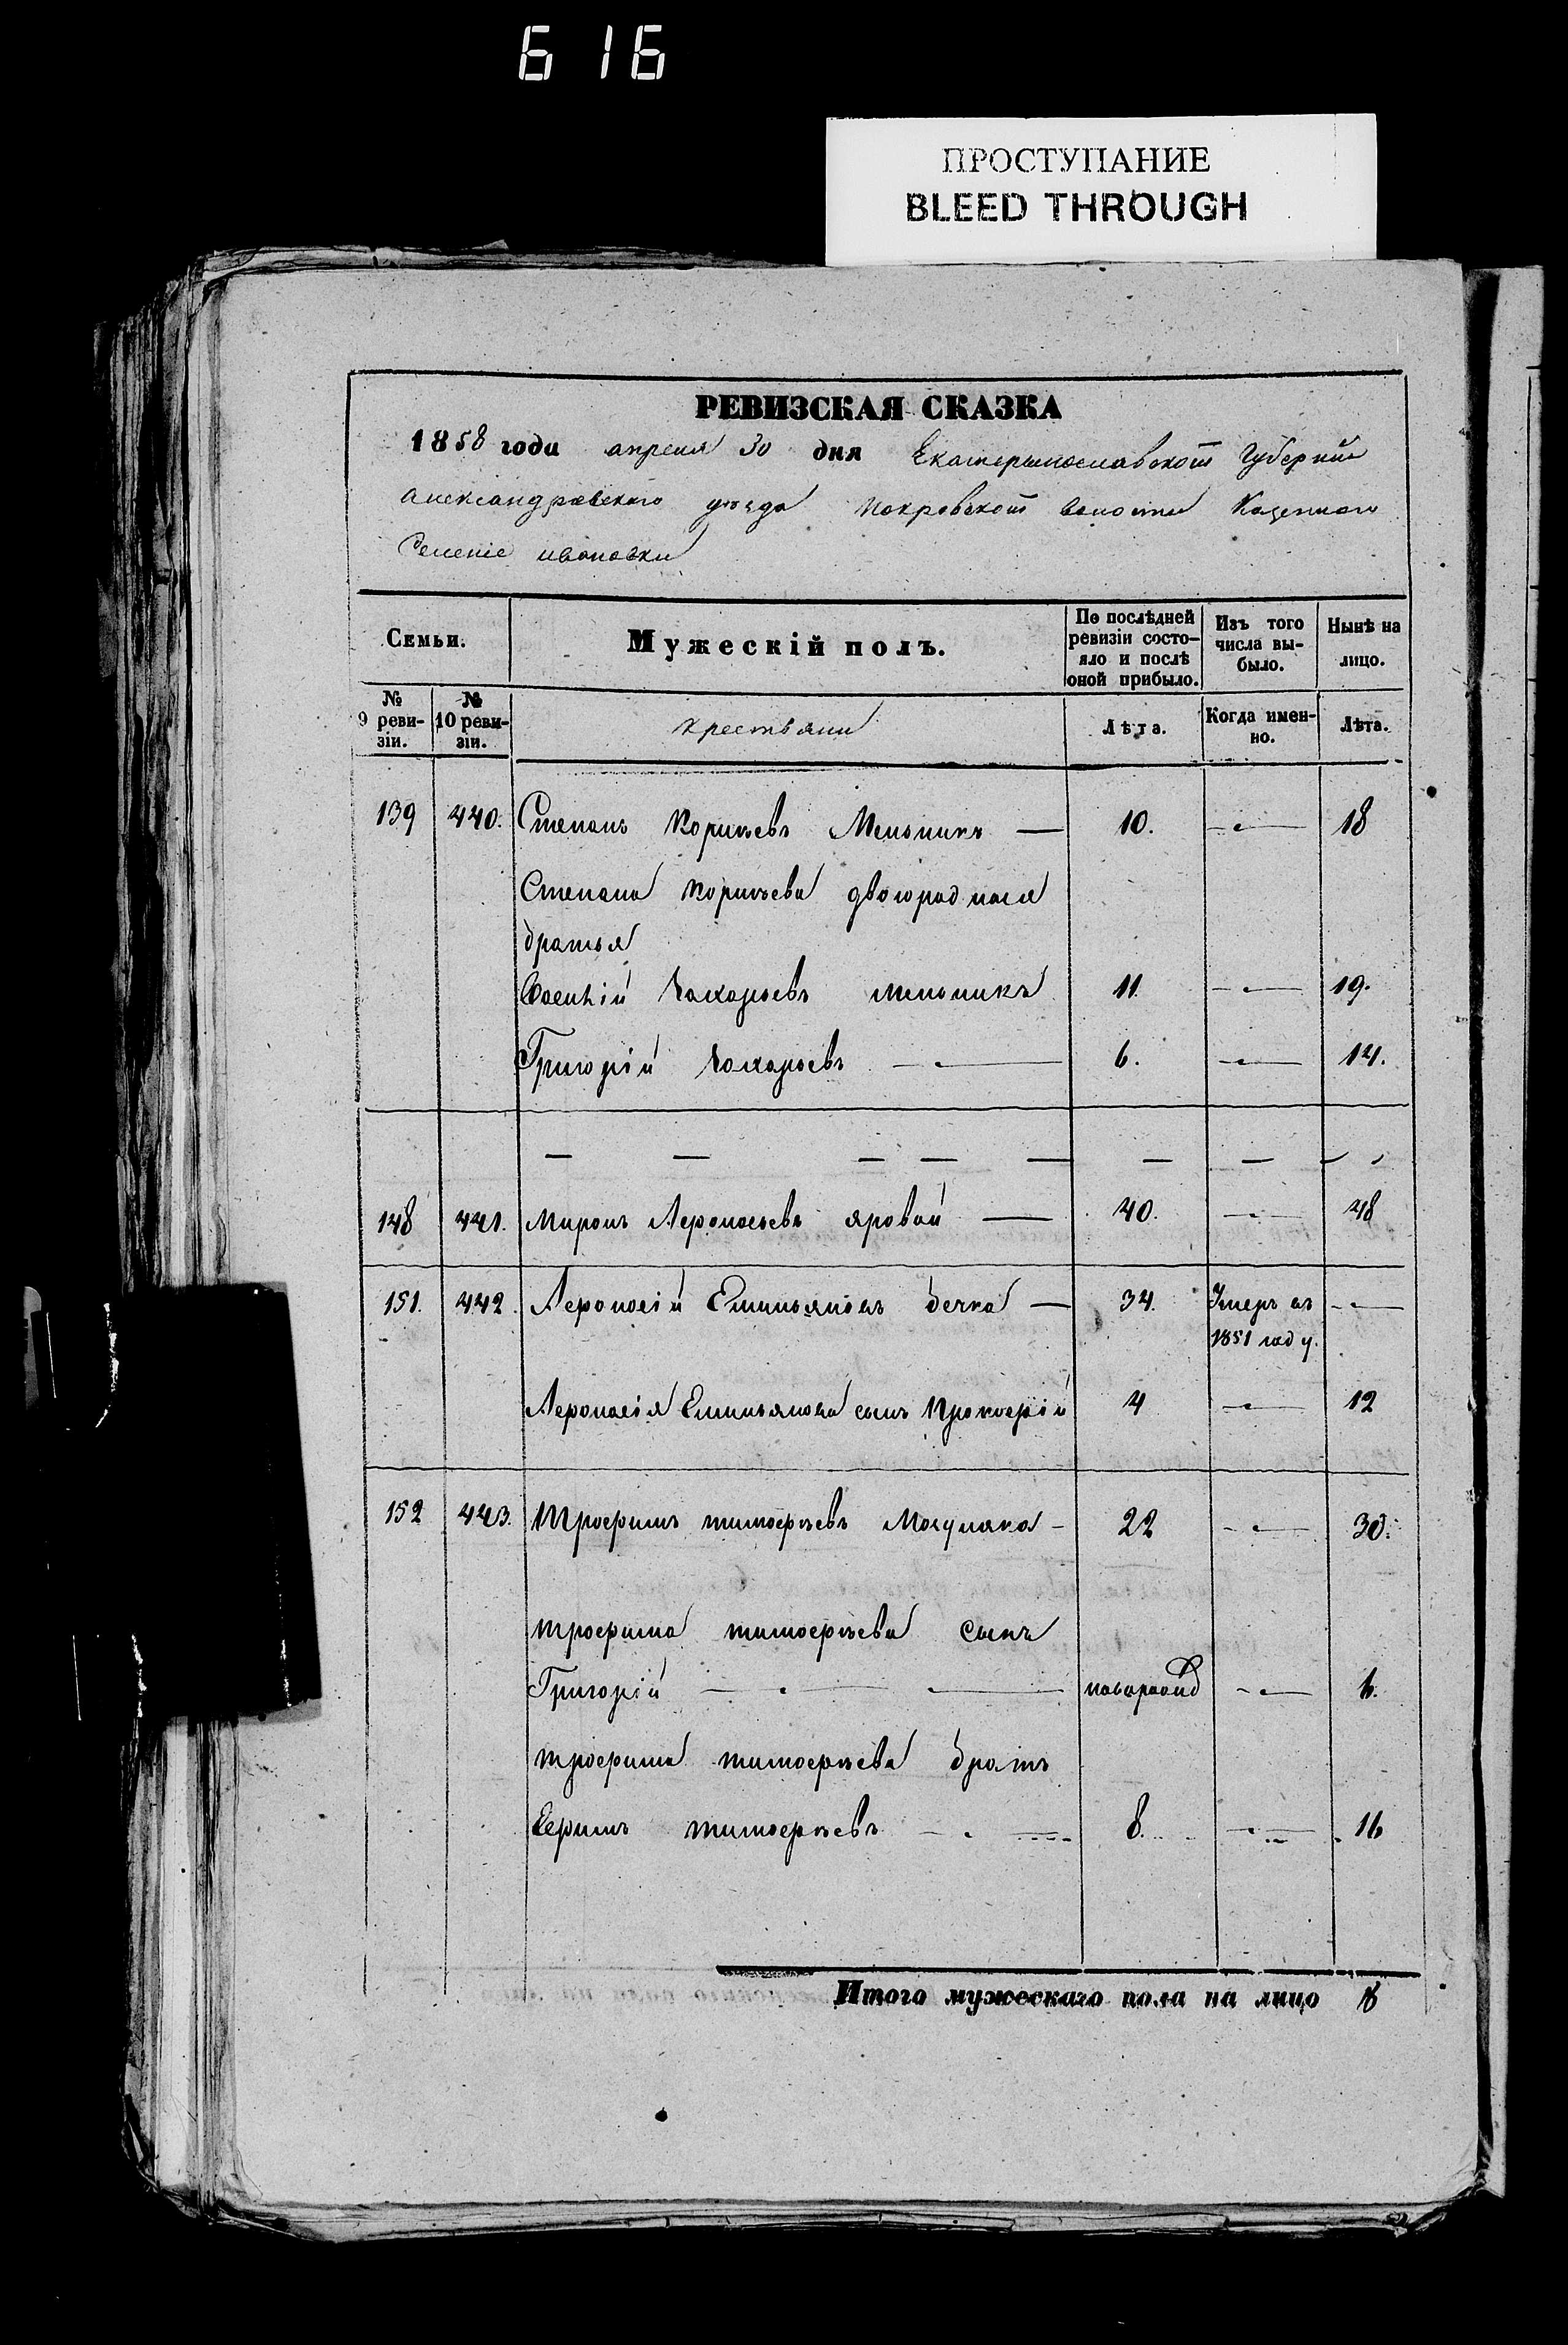 616
ПРОСТУПАНИЕ
BLEED THROUGH
РЕВИЗСКАЯ СКАЗКА
1858 года апреля 30 дня Екатеринославской Губернии
Александровского уѣзда Покровской волости Казенного
Селение Ивановки
Семьи.
Мужескій полъ.
По послѣдней ревизіи состо-
яло и послѣ оной прибыло.
Изъ того числа вы-
было.
Нынѣ на лицо.
№ 9 реви-
зіи.
№ 10 реви-
зіи.
Крестьяни
Лѣта.
Когда имен-
но.
Лѣта.
139 440. Степанъ Корнѣевъ Мельникъ — 10. — 18
Степана Корнѣева двоюродные
братья
Василій Захарьевъ Мельникъ 11. — 19.
Григорій Захарьевъ — 6. — 14.
— — — — — — — — —
148 441. Миронъ Афонасьевъ Яровой — 40. — 48
151. 442. Афонасій Емильяновъ — 34. Умеръ въ —
1851 году.
Афонасія Емильянова сынъ Прокофій 4 — 12
152 443. Трофимъ Тимофѣевъ — 22 — 30.
Трофима Тимофѣева сынъ
Григорій — — новорожд — 6.
Трофима Тимофѣева братъ
Ефимъ Тимофѣевъ — 8. — 16
Итого мужескаго пола на лицо 8